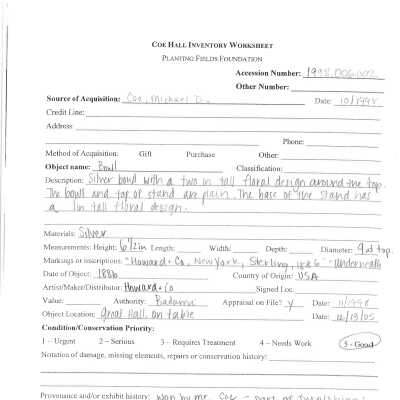 COE HALL INVENTORY WORKSHEET
PLANTING FIELDS FOUNDATION
Accession Number: 1998.006.002
Other Number:
Source of Acquisition: Coe, Michael D. Date: 10/1998
Credit Line:
Address:
Phone:
Method of Acquisition: Gift Purchase Other:
Object name: Bowl Classification:
Description: Silver bowl with a two in tall floral design around the top.
The bowl and top of stand are plain. The base of the stand has
a 1 in tall floral design.
Materials: Silver
Measurements: Height: 6 1/2 in Length: Width: Depth: Diameter: 9 at top
Markings or inscriptions: "Howard + Co, New York, Sterling, 1886" Underneath
Date of Object: 1886 Country of Origin: USA
Artist/Maker/Distributor: Howard + Co Signed Loc:
Value: Authority: Appraisal on File? y Date: 11/998
Object Location: Great Hall, on table Date: 12/13/05
Condition/Conservation Priority:
1 – Urgent 2 – Serious 3 – Requires Treatment 4 – Needs Work 5 - Good
Notation of damage, missing elements, repairs or conservation history:
Provenance and/or exhibit history: Won by Mr. Coe - part of furnishings